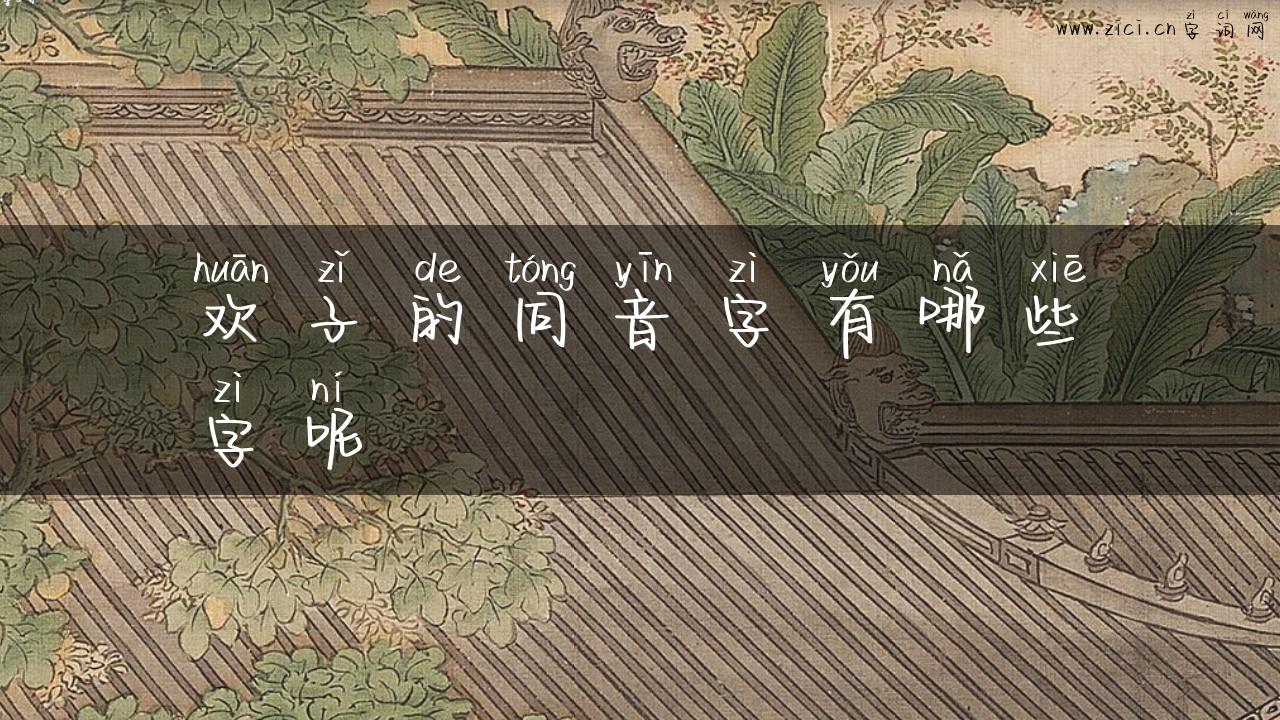 zì cí wǎng
www.zici.cn 字词网
huān zǐ de tóng yīn zì yǒu nǎ xiē
欢子的同音字有哪些
zì ní
字呢